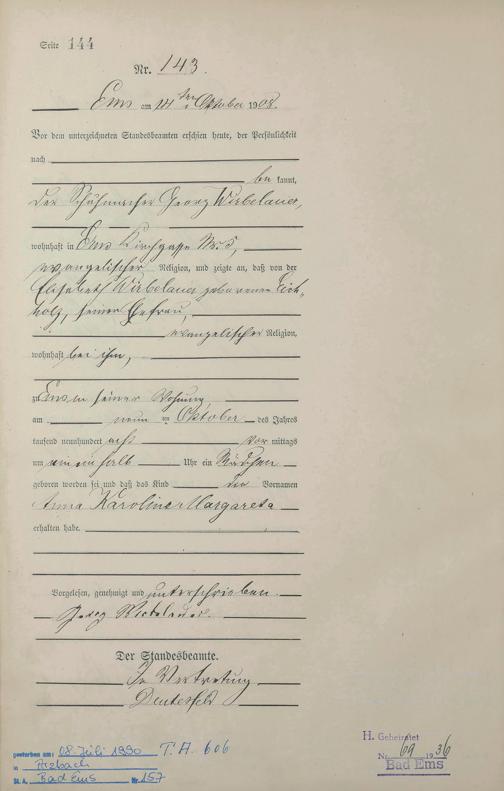 Seite 144
Nr. 143.
Ems am 14ten Oktober 1908.
Vor dem unterzeichneten Standesbeamten erschien heute, der Persönlichkeit
nach
be kannt,
der Schuhmacher Georg Wirbelauer,
wohnhaft in Ems Kirchgasse No 5,
evangelischer Religion, und zeigte an, daß von der
Elisabeth Wirbelauer geborenen Eich-
holz, seiner Ehefrau,
evangelischer Religion,
wohnhaft bei ihm,
zu Ems in seiner Wohnung,
am neun ten Oktober des Jahres
tausend neunhundert acht vor mittags
um ein halb Uhr ein Mädchen
geboren worden sei und daß das Kind die Vornamen
Anna Karoline Margareta
erhalten habe.
Vorgelesen, genehmigt und unterschrieben.
Georg Wirbelauer.
Der Standesbeamte.
In Vertretung
gestorben am: 08. Juli 1990 T.A. 606
in Arzbach
St. A. Bad Ems Nr. 157
H. Geheiratet
Nr. 69 1936
Bad Ems